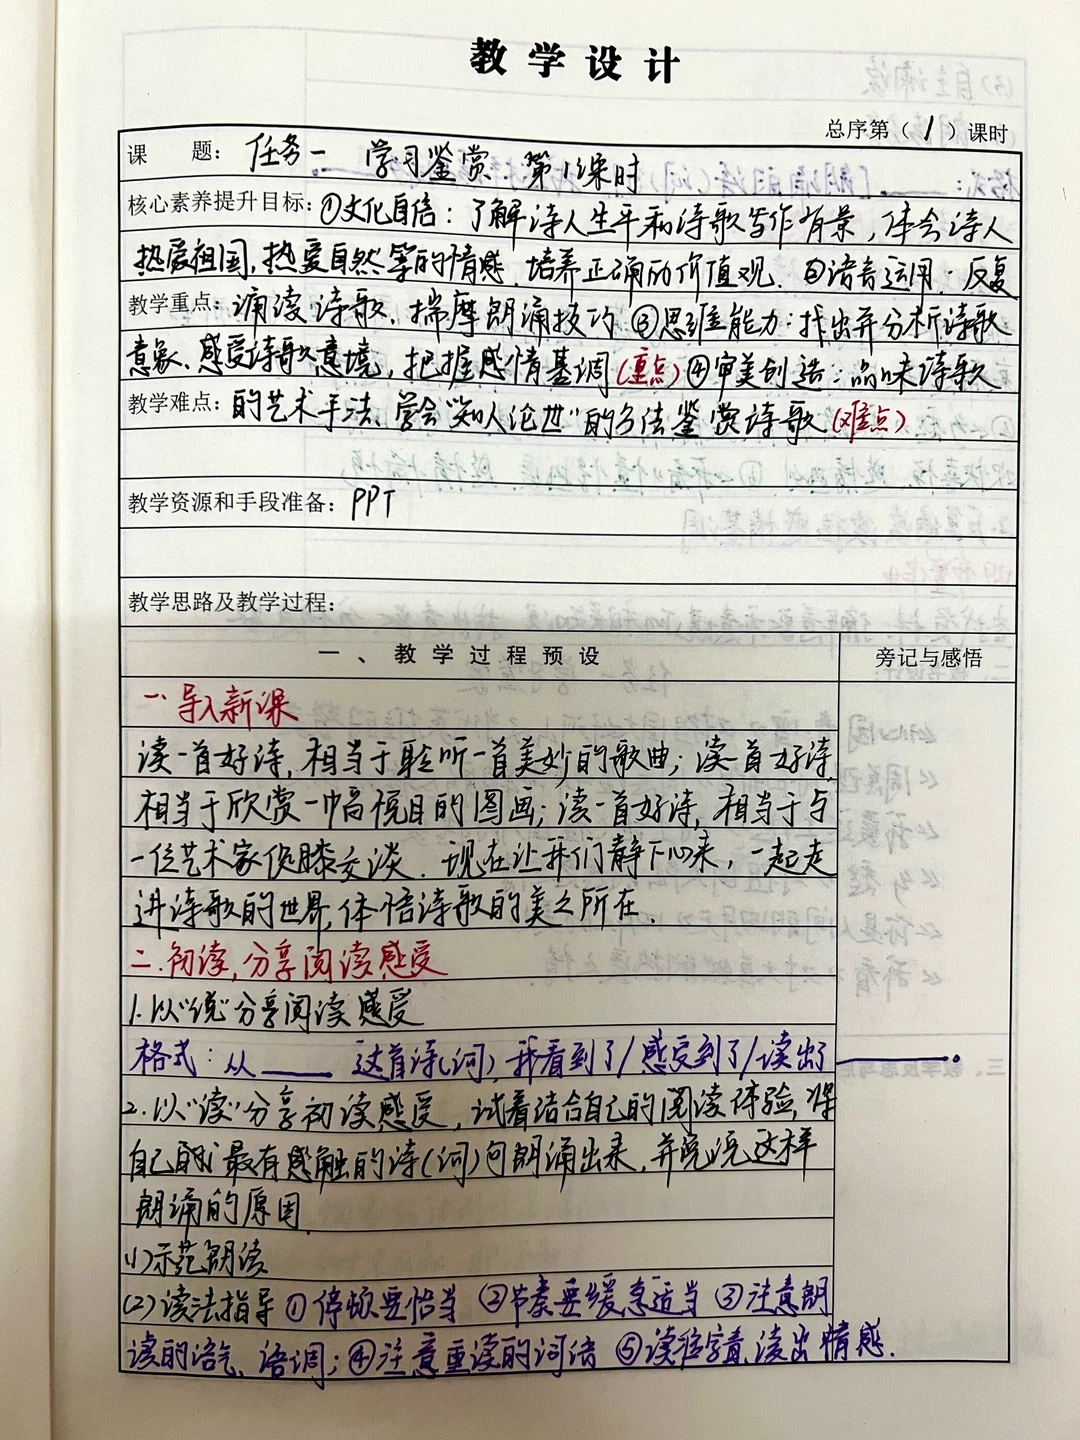 教学设计
总序第（1）课时
课 题：任务一 学习鉴赏 第1课时
核心素养提升目标：①文化自信：了解诗人生平和诗歌写作背景，体会诗人
热爱祖国，热爱自然等的情感，培养正确的价值观。②语言运用：反复
教学重点：诵读诗歌，揣摩朗诵技巧 ③思维能力：找出并分析诗歌
意象、感受诗歌意境，把握感情基调（重点）④审美创造：品味诗歌
教学难点：的艺术手法、学会“知人论世”的方法鉴赏诗歌（难点）
教学资源和手段准备：PPT
教学思路及教学过程：
一、教学过程预设
旁记与感悟
一、导入新课
读一首好诗，相当于聆听一首美妙的歌曲；读一首好诗，
相当于欣赏一幅悦目的图画；读一首好诗，相当于与
一位艺术家促膝交谈．现在让我们静下心来，一起走
进诗歌的世界，体悟诗歌的美之所在．
二．初读，分享阅读感受
1．以“说”分享阅读感受
格式：从____ 这首诗（词），我看到了/感受到了/读出了
2．以“读”分享初读感受，试着结合自己的阅读体验，将
自己的最有感触的诗（词）句朗诵出来，并说说这样
朗诵的原因．
(1)示范朗读
(2)读法指导 ①停顿要恰当 ②节奏要缓急适当 ③注意朗
读的语气、语调；④注意重读的词语 ⑤读准字音，读出情感．